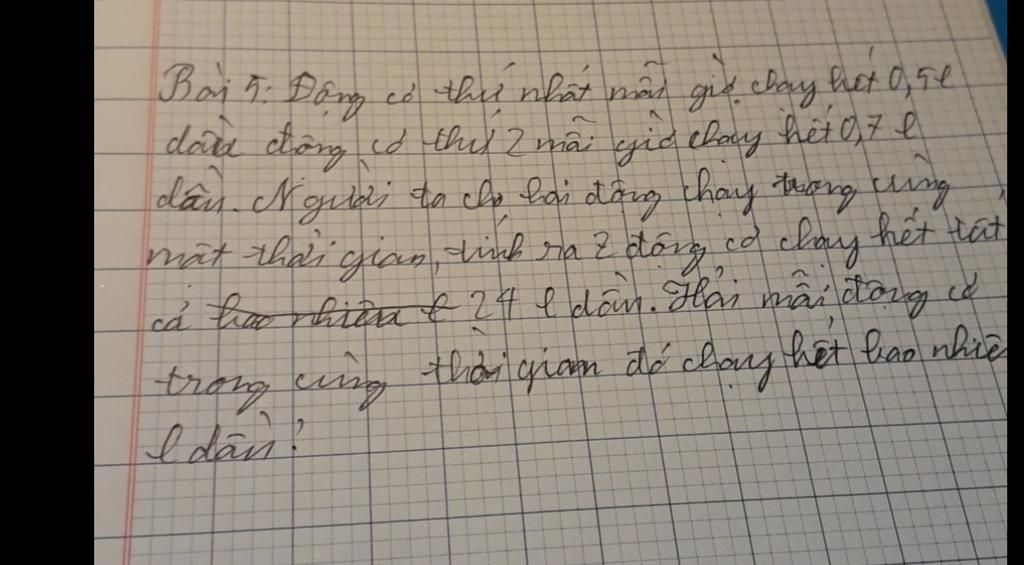 Bài 5: Động cơ thứ nhất mỗi giờ chạy hết 0,5 l
dầu động cơ thứ 2 mỗi giờ chạy hết 0,7 l
dầu. Người ta cho hai động chạy trong cùng
một thời gian, tính ra 2 động cơ chạy hết tất
cả bao nhiêu l 24 l dầu. Hỏi mỗi động cơ
trong cùng thời gian đó chạy hết bao nhiê
l dầu?